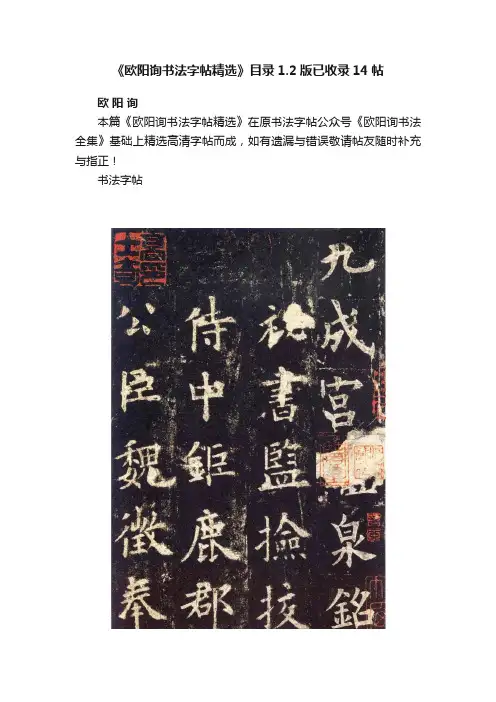 《欧阳询书法字帖精选》目录1.2版已收录14帖
欧 阳 询
本篇《欧阳询书法字帖精选》在原书法字帖公众号《欧阳询书法
全集》基础上精选高清字帖而成，如有遗漏与错误敬请帖友随时补充
与指正！
书法字帖
九成宫 泉銘
祕書監撿挍
侍中鉅鹿郡
公臣魏徵奉